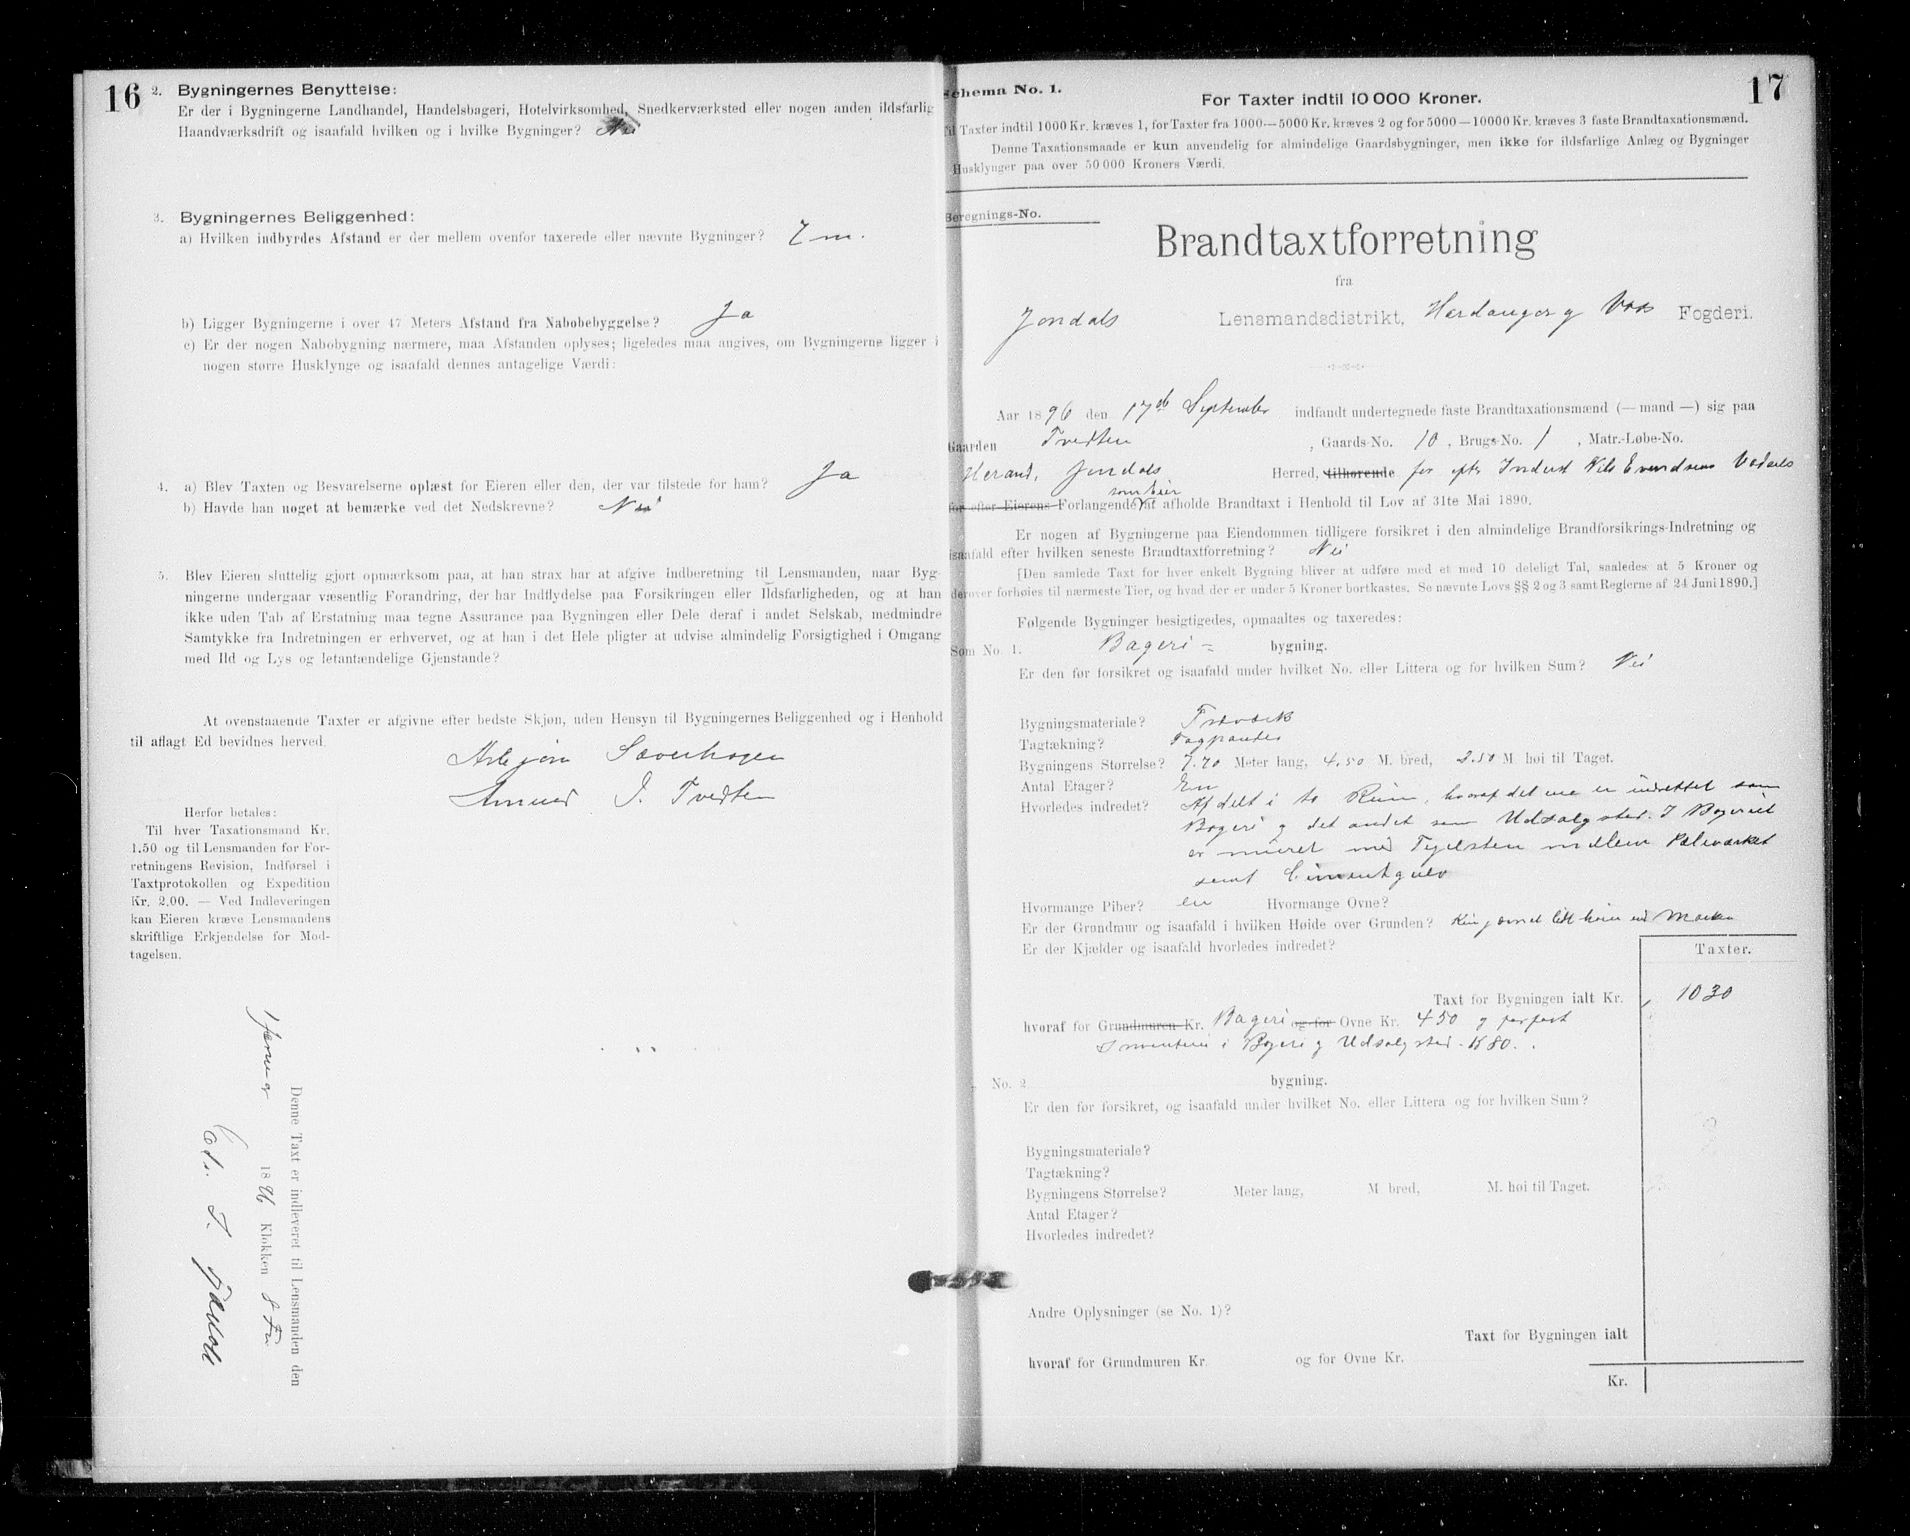 16
2. Bygningernes Benyttelse:
Er der i Bygningerne Landhandel, Handelsbageri, Hotelvirksomhed, Snedkerværksted eller nogen anden ildsfarlig
Haandværksdrift og isaafald hvilken og i hvilke Bygninger? Nei
3. Bygningernes Beliggenhed:
a) Hvilken indbyrdes Afstand er der mellem ovenfor taxerede eller nævnte Bygninger? 7 m.
b) Ligger Bygningerne i over 47 Meters Afstand fra Nabobebyggelse? Ja
c) Er der nogen Nabobygning nærmere, maa Afstanden oplyses; ligeledes maa angives, om Bygningerne ligger i
nogen større Husklynge og isaafald dennes antagelige Værdi:
4. a) Blev Taxten og Besvarelserne oplæst for Eieren eller den, der var tilstede for ham? Ja
b) Havde han noget at bemærke ved det Nedskrevne? Nei
5. Blev Eieren sluttelig gjort opmærksom paa, at han strax har at afgive Indberetning til Lensmanden, naar Byg-
ningerne undergaar væsentlig Forandring, der har Indflydelse paa Forsikringen eller Ildsfarligheden, og at han
ikke uden Tab af Erstatning maa tegne Assurance paa Bygningen eller Dele deraf i andet Selskab, medmindre
Samtykke fra Indretningen er erhvervet, og at han i det Hele pligter at udvise almindelig Forsigtighed i Omgang
med Ild og Lys og letantændelige Gjenstande?
At ovenstaaende Taxter er afgivne efter bedste Skjøn, uden Hensyn til Bygningernes Beliggenhed og i Henhold
til aflagt Ed bevidnes herved.
Asbjørn Saverhagen
Amund J. Tvedten
Herfor betales:
Til hver Taxationsmand Kr.
1.50 og til Lensmanden for For-
retningens Revision, Indførsel i
Taxtprotokollen og Expedition
Kr. 2.00. — Ved Indleveringen
kan Eieren kræve Lensmandens
skriftlige Erkjendelse for Mod-
tagelsen.
Denne Taxt er indleveret til Lensmanden den
1 Januar 1896 Klokken 8 Fm
17
Schema No. 1.
For Taxter indtil 10 000 Kroner.
Til Taxter indtil 1000 Kr. kræves 1, for Taxter fra 1000—5000 Kr. kræves 2 og for 5000—10000 Kr. kræves 3 faste Brandtaxationsmænd.
Denne Taxationsmaade er kun anvendelig for almindelige Gaardsbygninger, men ikke for ildsfarlige Anlæg og Bygninger
Husklynger paa over 50 000 Kroners Værdi.
Beregnings-No.
Brandtaxtforretning
fra
Jondals Lensmandsdistrikt, Hardanger og Voss Fogderi.
Aar 1896 den 17de September indfandt undertegnede faste Brandtaxationsmænd (— mand —) sig paa
Gaarden Tvedten, Gaards-No. 10, Brugs-No. 1, Matr.-Løbe-No.
Herand, Jondals Herred, tilhørende for efter Nils
som Eier
for efter Eierens Forlangende at afholde Brandtaxt i Henhold til Lov af 31te Mai 1890.
Er nogen af Bygningerne paa Eiendommen tidligere forsikret i den almindelige Brandforsikrings-Indretning og
isaafald efter hvilken seneste Brandtaxtforretning? Nei
[Den samlede Taxt for hver enkelt Bygning bliver at udføre med et med 10 deleligt Tal, saaledes at 5 Kroner og
derover forhøies til nærmeste Tier, og hvad der er under 5 Kroner bortkastes. Se nævnte Lovs §§ 2 og 3 samt Reglerne af 24 Juni 1890.]
Følgende Bygninger besigtigedes, opmaaltes og taxeredes:
Som No. 1. Bageri= bygning.
Er den før forsikret og isaafald under hvilket No. eller Littera og for hvilken Sum? Nei
Bygningsmateriale? Træværk
Tagtækning? Tagpander
Bygningens Størrelse? 7.70 Meter lang, 4.50 M. bred, 2.50 M. høi til Taget.
Antal Etager? En
Hvorledes indredet? Afdelt i to Rum, hvoraf det ene er indrettet som
Bageri og det andet som Udsalgsted. I Bageriet
er muret med Teglsten mellem Peleværket
samt Cimentgulv
Hvormange Piber? en Hvormange Ovne?
Er der Grundmur og isaafald i hvilken Høide over Grunden? litt høiere end Marken
Er der Kjælder og isaafald hvorledes indredet?
Taxter.
Taxt for Bygningen ialt Kr. 1030
hvoraf for Grundmuren Kr. Bageri og for Ovne Kr. 450 og for fast
Inventar i Bageri og Udsalgsted K 80.
No. 2 bygning.
Er den før forsikret, og isaafald under hvilket No. eller Littera og for hvilken Sum?
Bygningsmateriale?
Tagtækning?
Bygningens Størrelse? Meter lang, M. bred, M. høi til Taget.
Antal Etager?
Hvorledes indredet?
Andre Oplysninger (se No. 1)?
Taxt for Bygningen ialt
hvoraf for Grundmuren Kr. og for Ovne Kr.
Kr.